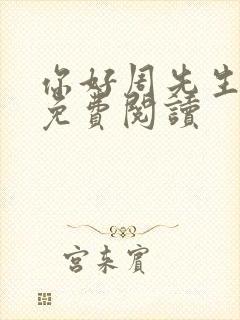 你好周先生
免費閱讀
宮来賓